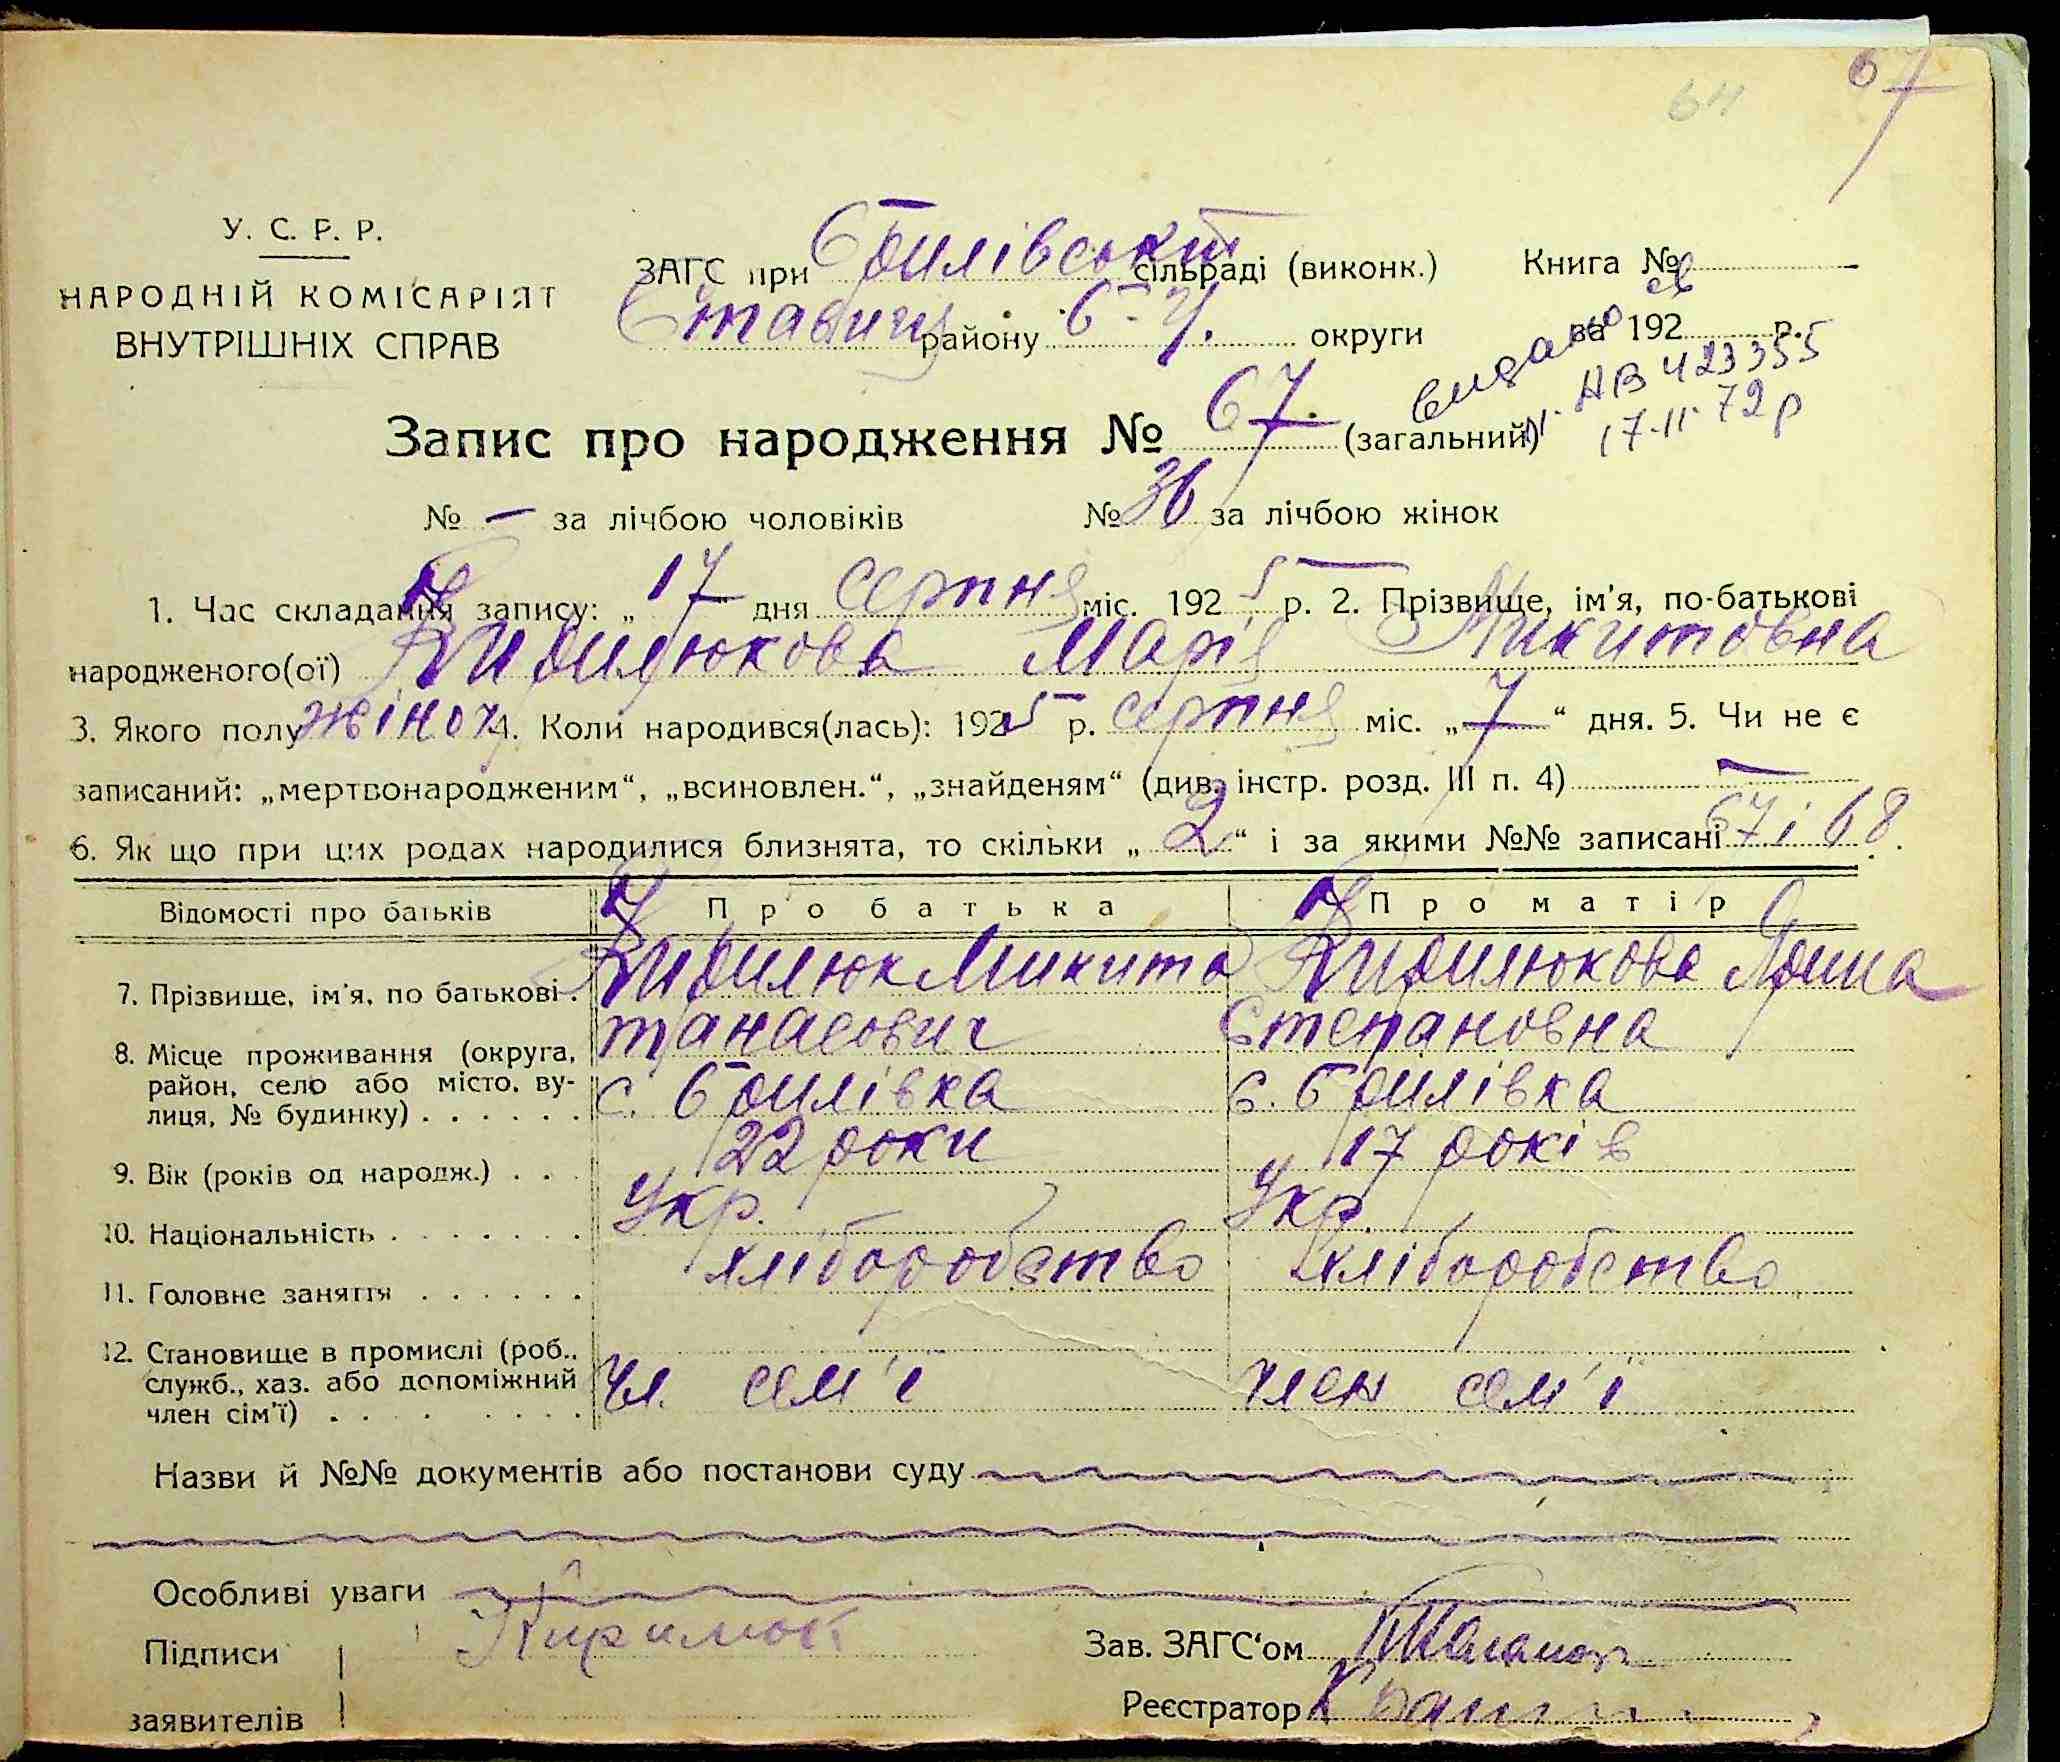 67
64
У. С. Р. Р.
НАРОДНІЙ КОМІСАРІЯТ
ВНУТРІШНІХ СПРАВ
ЗАГС при Брилівській сільраді (виконк.) Книга №
Ставищ району Б-Ц. округи за 192 р.
видано св
ІІ. АВ 423355
17.11.72р
Запис про народження № 67. (загальний)
№ – за лічбою чоловіків № 36 за лічбою жінок
1. Час складання запису: „17“ дня серпня міс. 1925 р. 2. Прізвище, ім'я, по-батькові
народженого(ої) Кирилюкова Марія Микитовна
3. Якого полу жіноч 4. Коли народився(лась): 1925 р. серпня міс. „7“ дня. 5. Чи не є
записаний: „мертвонародженим“, „всиновлен.“, „знайденям“ (див. інстр. розд. III п. 4) –
6. Як що при цих родах народилися близнята, то скільки „2“ і за якими №№ записані 67 і 68.
Відомості про батьків Про батька Про матір
7. Прізвище, ім'я, по батькові. Кирилюк Микита Кирилюкова Ярина
танасович Степановна
8. Місце проживання (округа,
район, село або місто, ву-
лиця, № будинку) . . . . . . с. Брилівка с. Брилівка
9. Вік (років од народж.) . . . 22 роки 17 років
10. Національність . . . . . . . Укр. Укр.
11. Головне заняття . . . . . . хліборобство хліборобство
12. Становище в промислі (роб.,
служб., хаз. або допоміжний
член сім'ї) . . . . . . . . Чл. сем'ї член сем'ї
Назви й №№ документів або постанови суду
Особливі уваги
Підписи Кирилюк Зав. ЗАГС'ом
заявителів Реєстратор